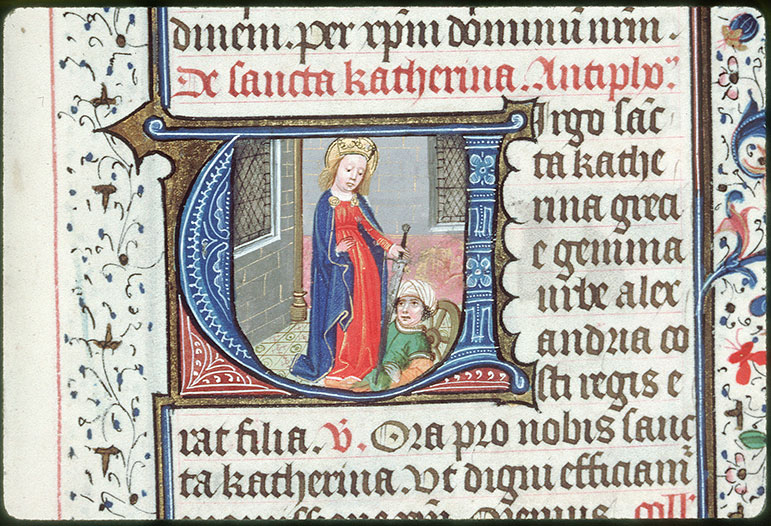 dinem. per xpm dominum nrm.
De sancta katherina. Antipho
Virgo sanc
ta kathe
rina greci
e gemma
urbe alex
andria co
sti regis e
rat filia. V. Ora pro nobis sanc
ta katherina. Ut digni efficiam